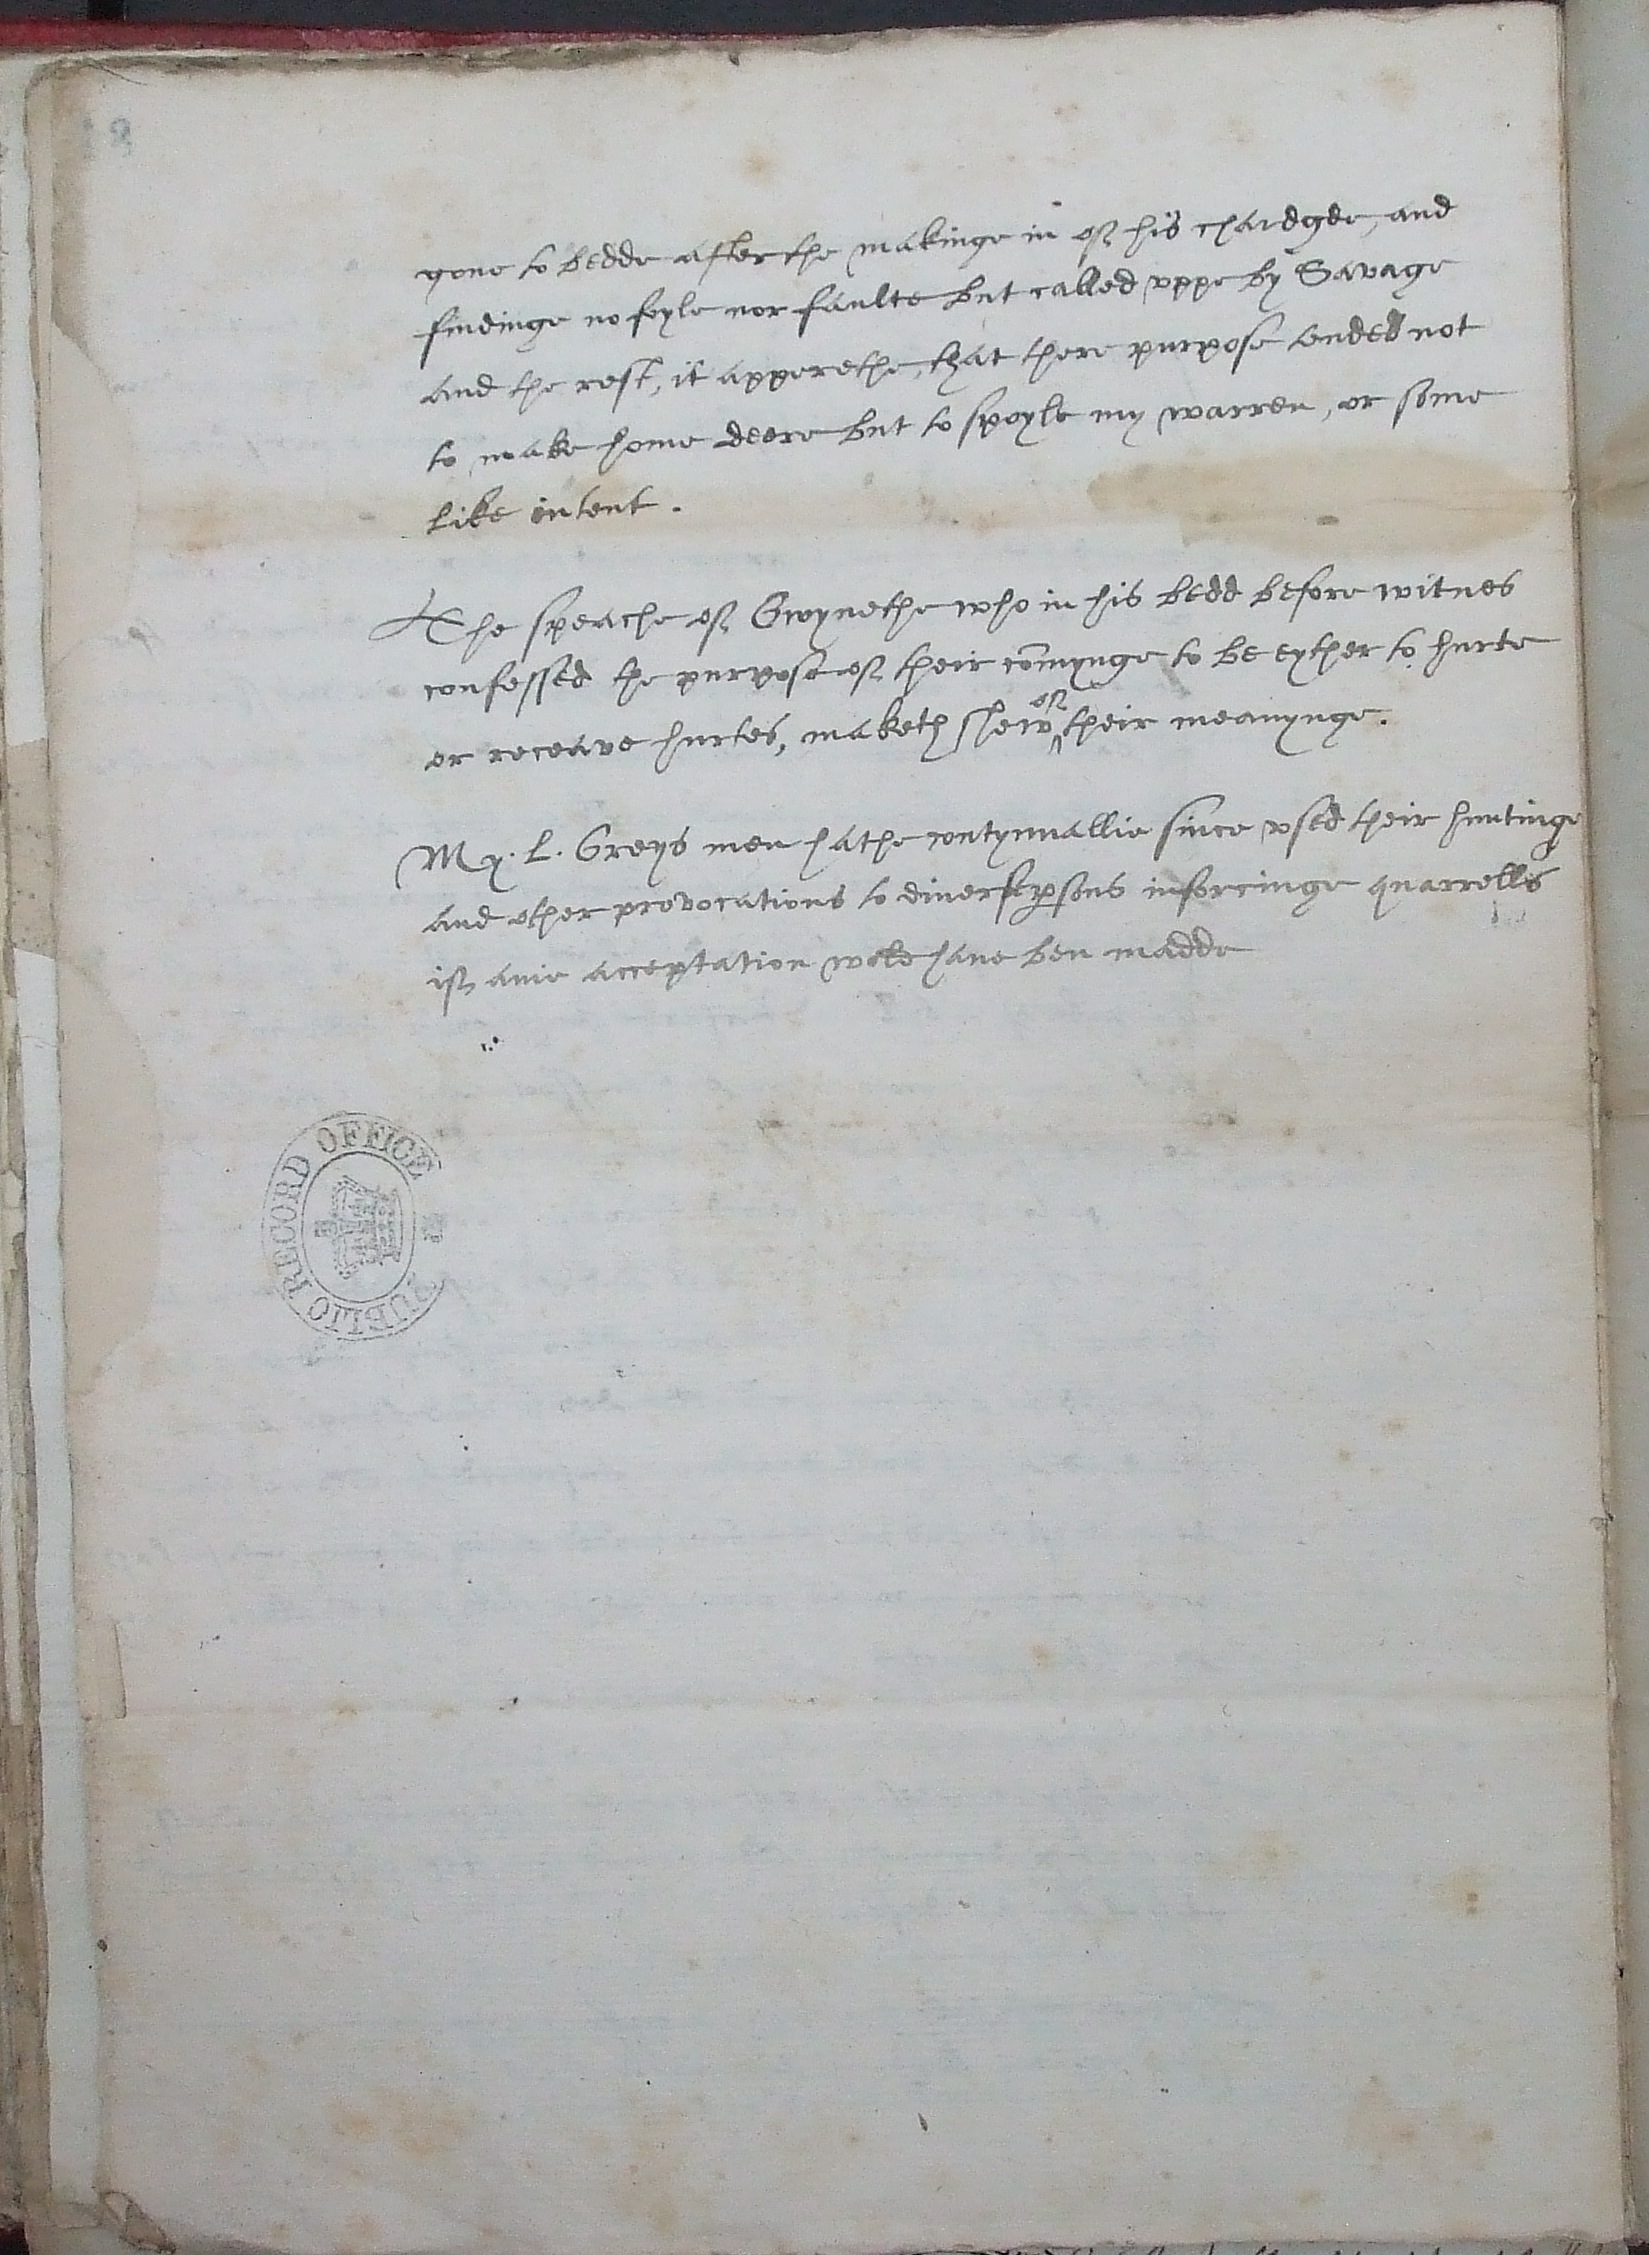 gone to bedde after the makinge in of his chardgde, and
findinge no foyle nor faulte but called uppe by Savage
and the rest, it apperethe, that there purpose ended not
to make home deere but to spoyle my warren, or some
like intent.
The speache of Gwynethe who in his bedd before witnes
confessed the purpose of their com̄ynge to be eyther to hurte
or receave hurtes, maketh shew of their meanynge.
My. L. Greys men hathe contynuallie since vsed their huntinge
and other provocations to diuers psons inforcinge quarrells
if anie acceptation wold haue ben madde
PUBLIC RECORD OFFICE